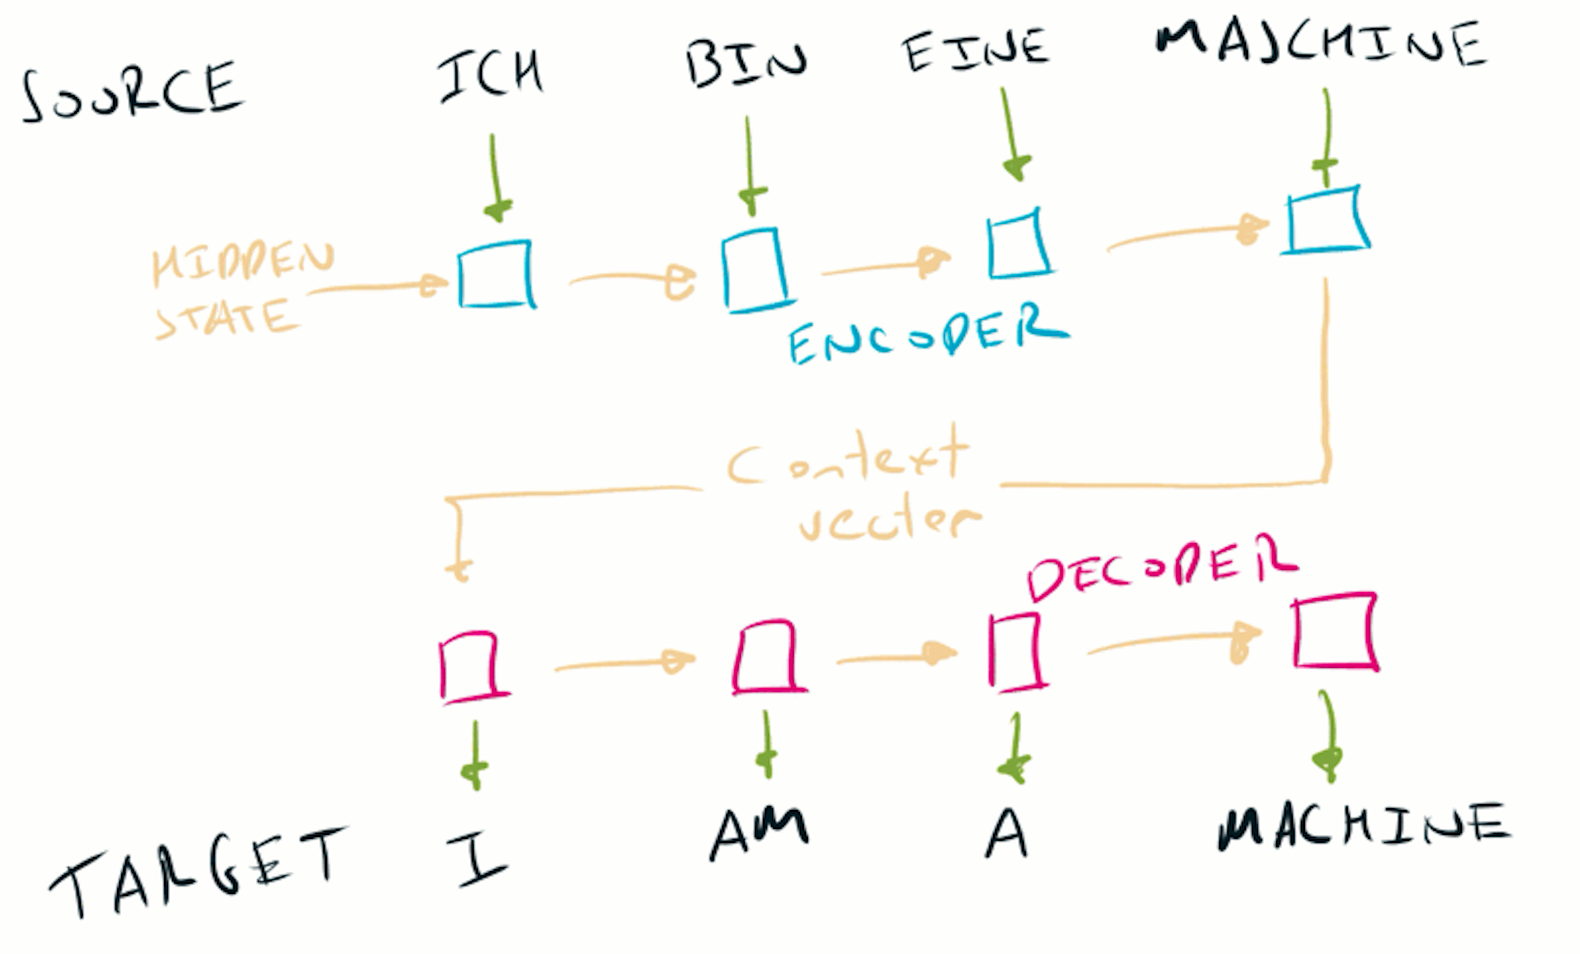 SOURCE ICH BIN EINE MASCHINE
HIDDEN
STATE
ENCODER
Context
vector
DECODER
TARGET I AM A MACHINE